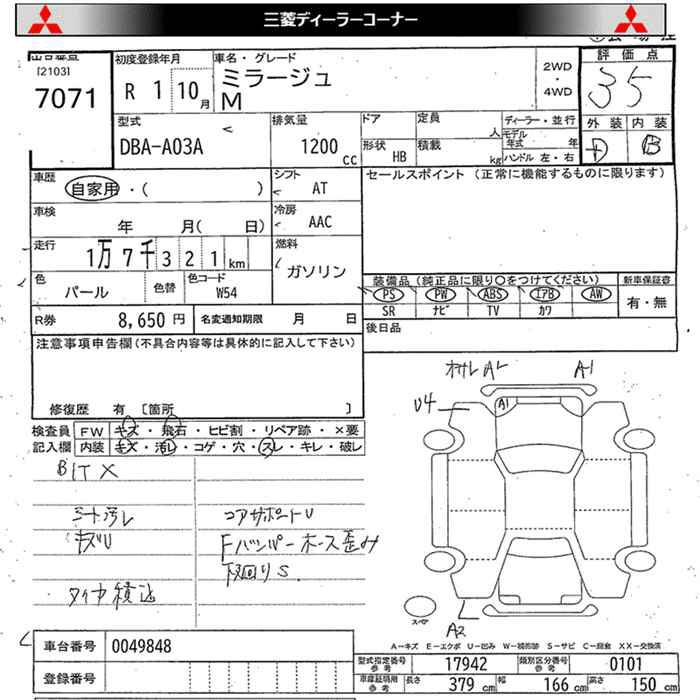 三菱ディーラーコーナー
[2103]
7071
初度登録年月
R 1 10月
車名・グレード
ミラージュ
M
2WD
・
4WD
評価点
35
外装 内装
D B
型式
DBA-A03A
排気量
1200 cc
ドア
形状 HB
定員 人
積載 kg
ディーラー・並行
モデル年式 年
ハンドル 左・右
車歴
自家用・( )
シフト
AT
車検
年 月( 日)
冷房
AAC
走行
1万7千321km
燃料
ガソリン
色
パール
色替
色コード
W54
セールスポイント (正常に機能するものに限ります)
装備品(純正品に限り○をつけてください)
PS PW ABS エアB AW
SR ナビ TV カワ
新車保証書
有・無
R券 8,650円
名変通知期限 月 日
後日品
注意事項申告欄(不具合内容等は具体的に記入して下さい)
修復歴 有 [箇所 ]
検査員 FW キズ・飛石・ヒビ割・リペア跡・×要
記入欄 内装 キズ・汚レ・コゲ・穴・スレ・キレ・破レ
A-1
U4
A1
シート汚レ
キズU
コアサポートU
Fバンパーホース歪み
下回りS.
タイヤ積込
スペア
A2
A-キズ E-エクボ U-凹み W-補修跡 S-サビ C-腐食 XX-交換済
車台番号 0049848
登録番号
型式指定番号 参考 17942
類別区分番号 参考 0101
車庫証明用 参考 長さ 379 cm 幅 166 cm 高さ 150 cm